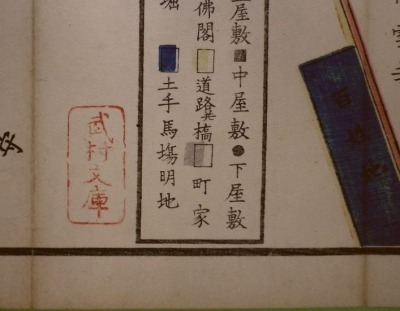 屋敷■中屋敷●下屋敷
佛閣 道路橋 町家
堀 土手馬塲明地
武村文庫